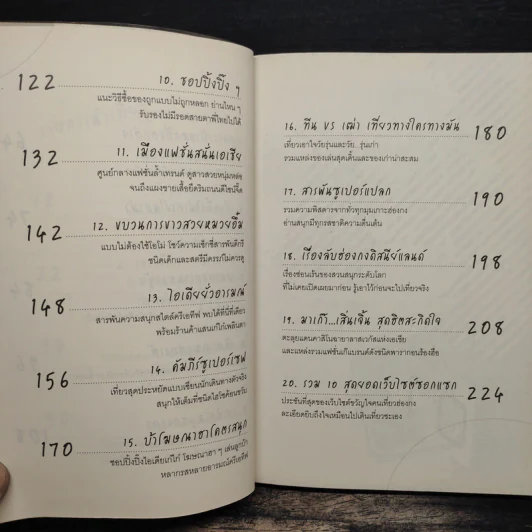 122 10. ชอปปิ้งปิ๊ง ๆ
แนะวิธีซื้อของถูกแบบไม่ถูกหลอก ย่านไหน ๆ
รับรองไม่มีรอดสายตาพี่ไทยไปได้
132 11. เมืองแฟชั่นสนั่นเอเชีย
ศูนย์กลางแฟชั่นล้ำเทรนด์ ดูสาวสวยหนุ่มหล่อ
จนถึงแผงขายเสื้อยืดริมถนนดีไซน์จี๊ด
142 12. ขบวนการขาวสวยหมวยอึ๋ม
แบบไม่ต้องใช้โอโม่ โชว์ความเซ็กซี่สารพันดีกรี
ชนิดเด็กและสตรีมีครรภ์ไม่ควรดู
148 13. ไอเดียยั่วอารมณ์
สารพันความสนุกสไตล์ครีเอทีฟ พบได้ที่นี่ที่เดียว
พร้อมร้านค้าแสนเก๋ไก๋เพลินตา
156 14. คัมภีร์ซูเปอร์เซฟ
เที่ยวสุดประหยัดแบบเซียนนักเดินทางตัวจริง
สนุกให้เต็มที่ชนิดไฮโซต้อนชาบ
170 15. บ้าโฆษณาฮาโคตรสนุก
ชอปปิ้งปิ๊งไอเดียเก๋ไก๋ โฆษณาฮา ๆ เล่นลูกบ้า
หลากรสหลายอารมณ์ครีเอทีฟ
16. ทีน VS เฒ่า เที่ยวทางใครทางมัน 180
เที่ยวเอาใจวัยรุ่นและวัย..รุ่นเก่า
รวมแหล่งของเล่นสุดเดิ้นและของเก่าน่าสะสม
17. สารพันซูเปอร์แปลก 190
รวมความพิสดารจากทั่วทุกมุมเกาะฮ่องกง
อ่านสนุกมีทุกรสชาติความตื่นเต้น
18. เรื่องลับฮ่องกงดิสนีย์แลนด์ 198
เรื่องซ่อนเร้นของสวนสนุกระดับโลก
ที่ไม่เคยเปิดเผยมาก่อน รู้เอาไว้ก่อนจะไปเที่ยวจริง
19. มาเก๊า...เสิ่นเจิ้น สุดฮิตสะกิดใจ 208
ตะลุยแดนคาสิโนอาขาลาสเวกัสแห่งเอเชีย
และแหล่งรวมแฟชั่นเก๊แบรนด์ดังชนิดพารากอนร้องฮือ
20. รวม 10 สุดยอดเว็บไซต์ซอกแซก 224
ประชันที่สุดของเว็บไซต์ขวัญใจคนเที่ยวฮ่องกง
ละเอียดยิบถึงใจเหมือนไปเดินเที่ยวซะเอง